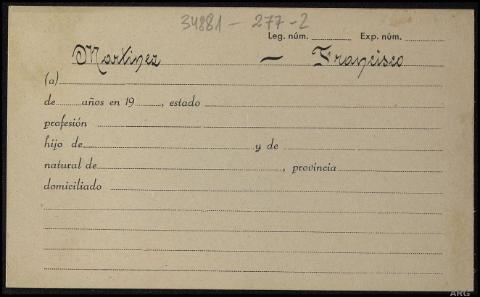 34881-277-2
Leg. núm. Exp. núm.
Martinez — Francisco
(a)
de años en 19 , estado
profesión
hijo de y de
natural de , provincia
domiciliado
ARG